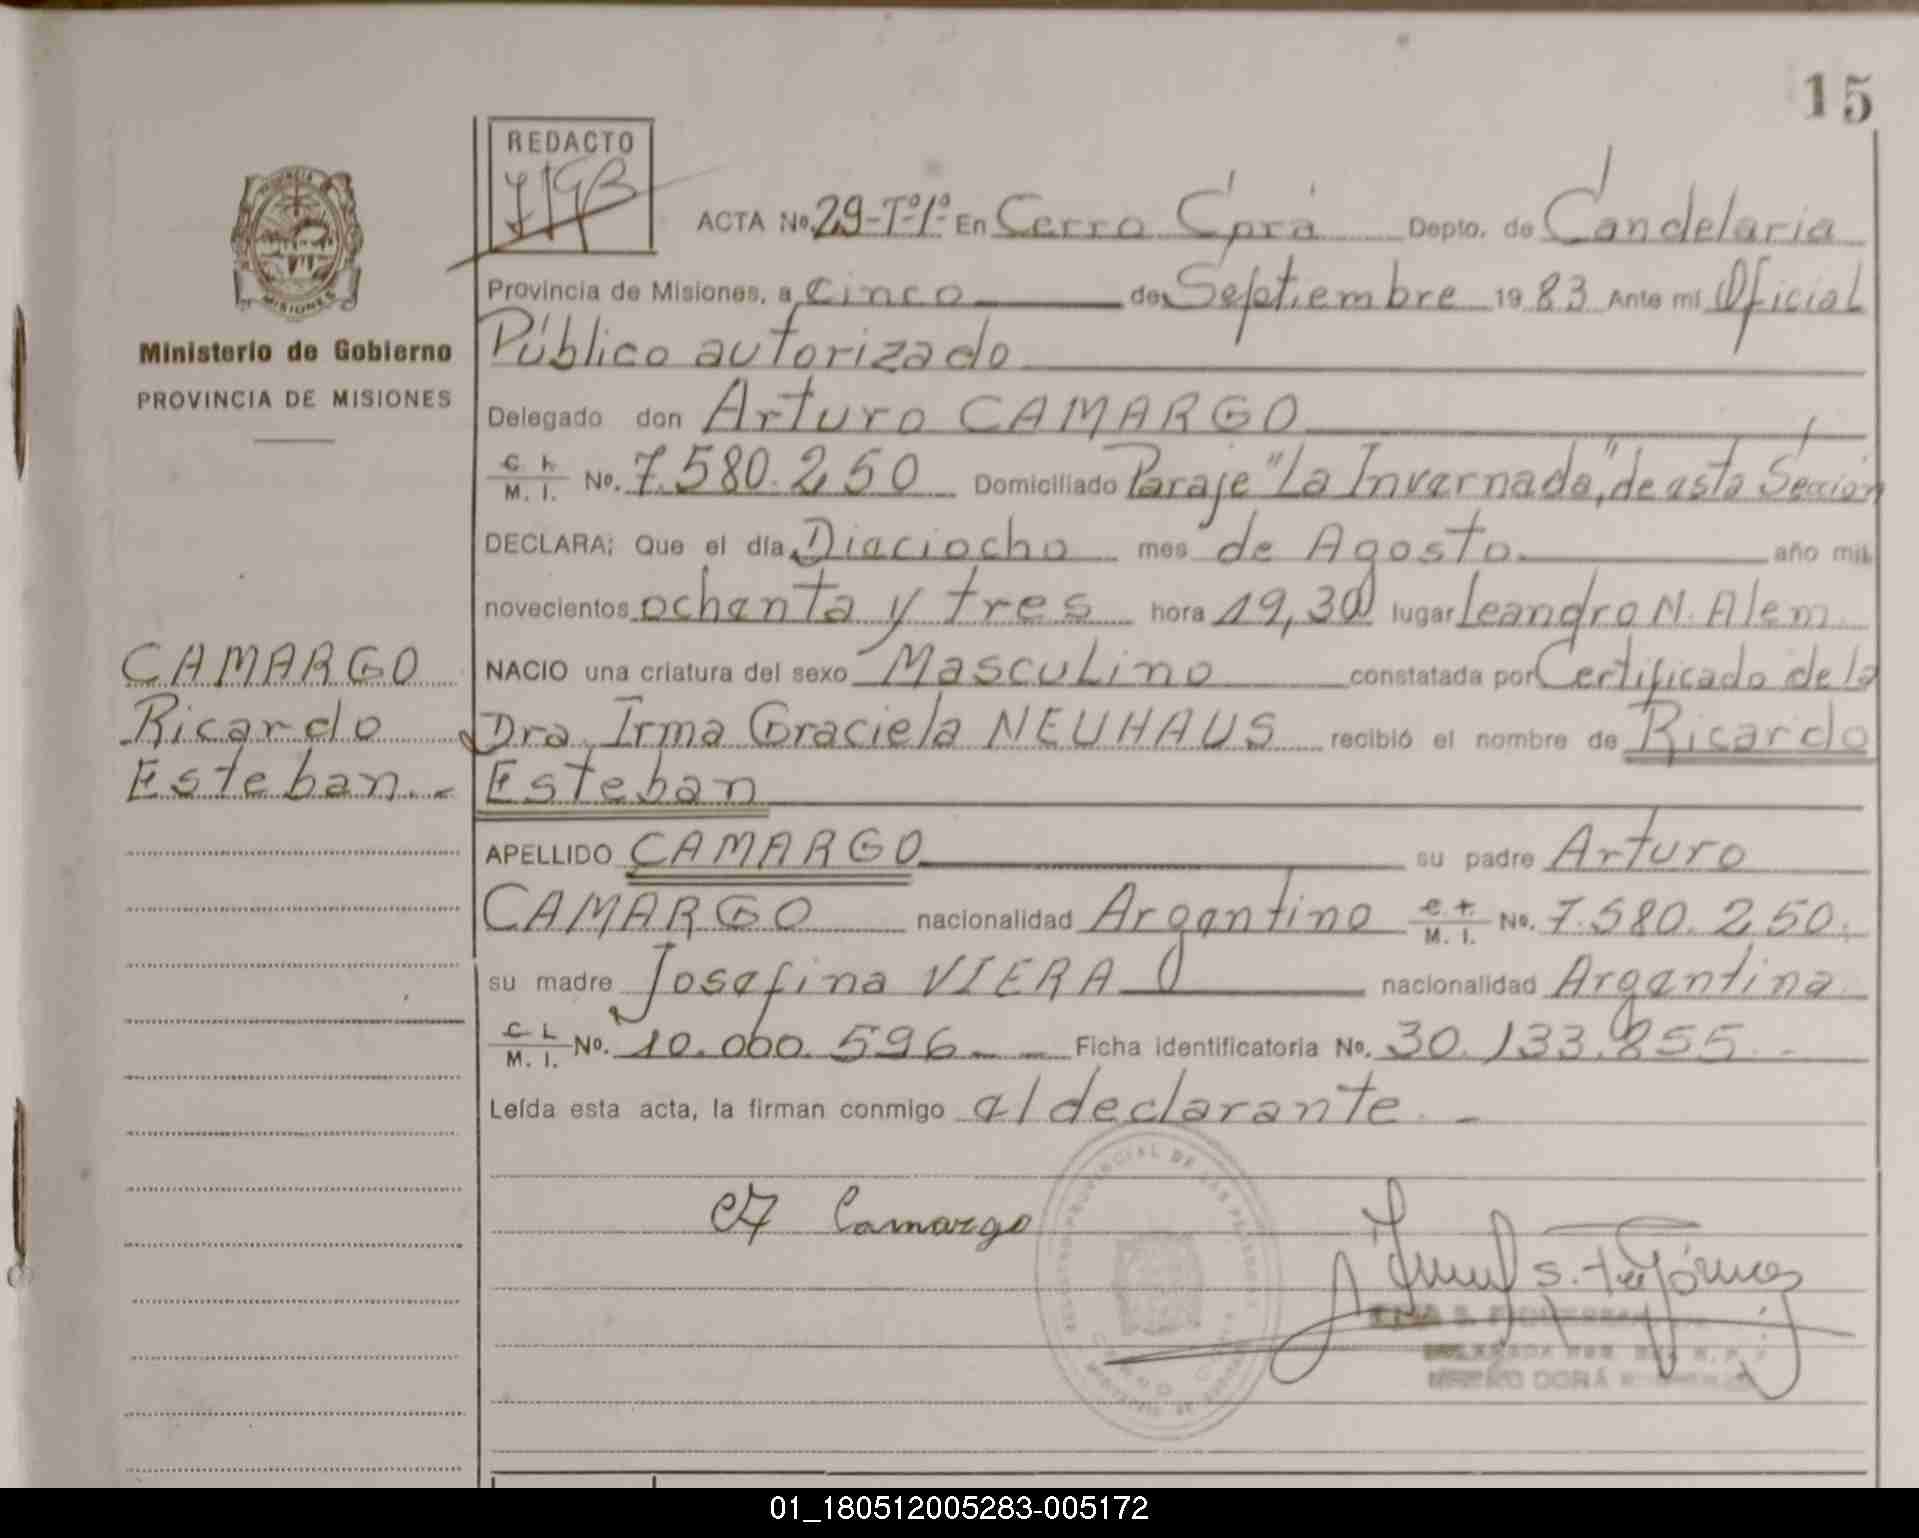 15
REDACTO
ACTA No. 29-Tº1º En Cerro Corá Depto. de Candelaria
Provincia de Misiones, a cinco de Septiembre 19 83 Ante mí Oficial
Ministerio de Gobierno
Público autorizado
PROVINCIA DE MISIONES
Delegado don Arturo CAMARGO
M. I. No. 7.580.250 Domiciliado Paraje "La Invernada", de esta Sección
DECLARA; Que el día Dieciocho mes de Agosto año mil
novecientos ochenta y tres hora 19,30 lugar Leandro N. Alem
CAMARGO
NACIO una criatura del sexo Masculino constatada por Certificado de la
Ricardo
Dra. Irma Graciela NEUHAUS recibió el nombre de Ricardo
Esteban.-
Esteban
APELLIDO CAMARGO su padre Arturo
CAMARGO nacionalidad Argentino M. I. No. 7.580.250.
su madre Josefina VIERA nacionalidad Argentina
C. I. M. I. No. 10.060.596 Ficha identificatoria No. 30.133.855.-
Leída esta acta, la firman conmigo el declarante.-
Camargo
01_180512005283-005172